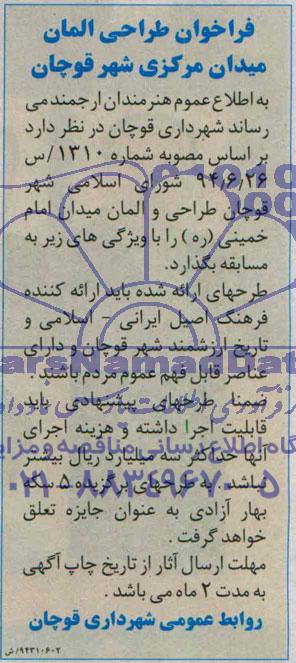 فراخوان طراحی المان
میدان مرکزی شهر قوچان
به اطلاع عموم هنرمندان ارجمند می
رساند شهرداری قوچان در نظر دارد
بر اساس مصوبه شماره ۱۳۱۰/س
۹۴/۶/۲۶ شورای اسلامی شهر
قوچان طراحی و المان میدان امام
خمینی (ره) را با ویژگی های زیر به
مسابقه بگذارد.
طرحهای ارائه شده باید ارائه کننده
فرهنگ اصیل ایرانی - اسلامی و
تاریخ ارزشمند شهر قوچان و دارای
عناصر قابل فهم عموم مردم باشند.
ضمنا طرحهای پیشنهادی باید
قابلیت اجرا داشته و هزینه اجرای
آنها حداکثر سه میلیارد ریال بیشتر
نباشد. به طرحهای برگزیده ۵ سکه
بهار آزادی به عنوان جایزه تعلق
خواهد گرفت.
مهلت ارسال آثار از تاریخ چاپ آگهی
به مدت ۲ ماه می باشد.
روابط عمومی شهرداری قوچان
۹۴۳۱۰۶۰۲/ش
ParsNamadData
گاه اطلاع رسانی مناقصه و مزاید
۰۲۱-۸۸۳۴۹۶۷۰-۵